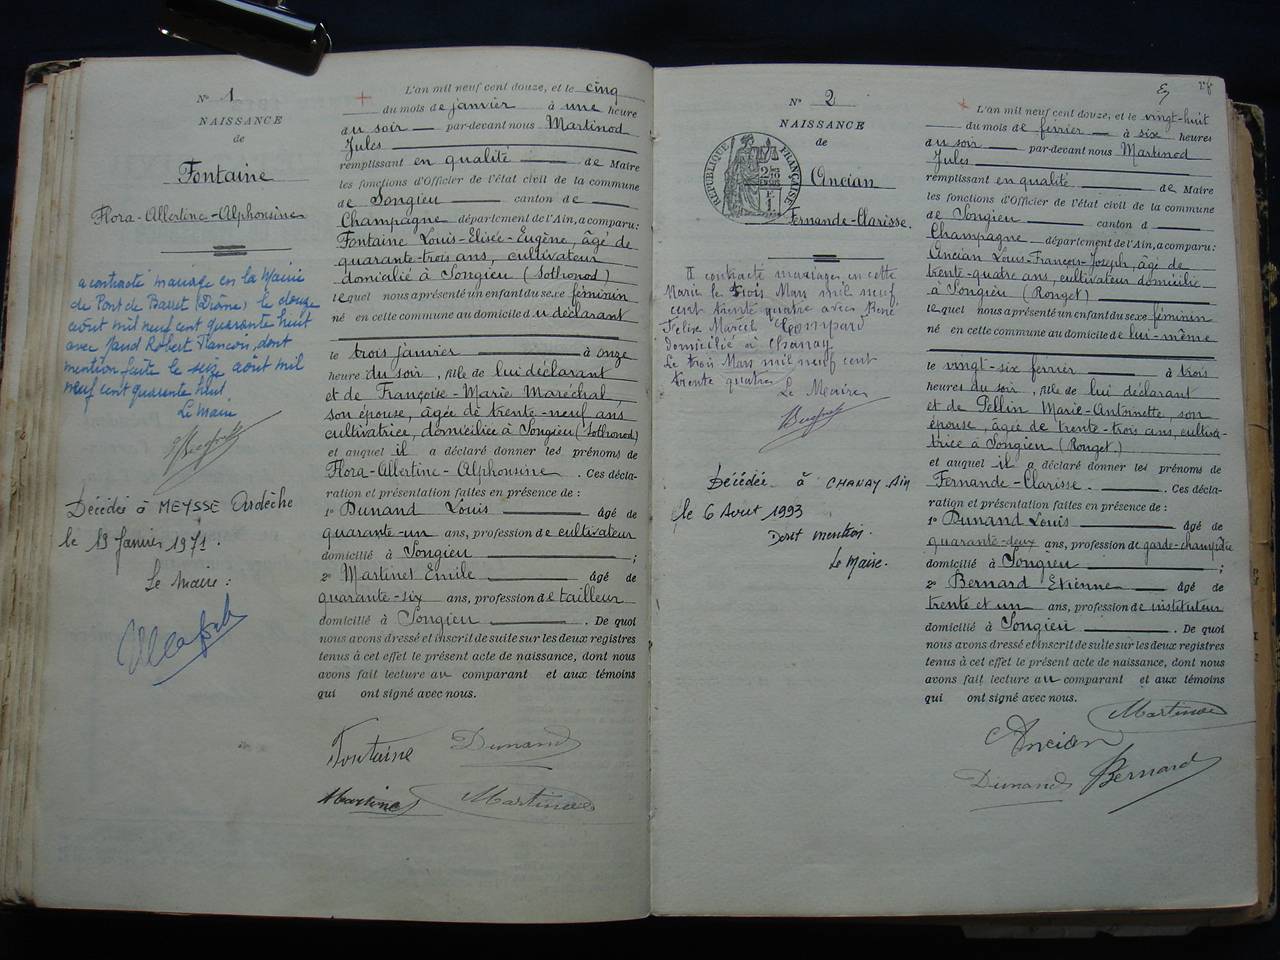 N° 1
NAISSANCE
de
Fontaine
Flora-Allertine-Alphonsine
a contracté mariage en la Mairie
de Pont de Barret (Drôme) le douze
août mil neuf cent quarante huit
avec Paud Robert dont
mention faite le seize août mil
neuf cent quarante huit
Le Maire
Décédée à MEYSSE Ardèche
le 19 Janvier 1971.
Le Maire :
L'an mil neuf cent douze, et le cinq
du mois de janvier à une heure
du soir par-devant nous Martinod
Jules
remplissant en qualité de Maire
les fonctions d'Officier de l'état civil de la commune
de Songieu canton de
Champagne département de l'Ain, a comparu:
Fontaine Louis-Elisée-Eugène, âgé de
quarante-trois ans, cultivateur
domicilié à Songieu (Sothonod)
lequel nous a présenté un enfant du sexe féminin
né en cette commune au domicile du déclarant
le trois janvier à onze
heure du soir, fille de lui déclarant
et de Françoise-Marie Maréchal,
son épouse, âgée de trente-neuf ans
cultivatrice, domiciliée à Songieu (Sothonod)
et auquel il a déclaré donner les prénoms de
Flora-Allertine-Alphonsine. Ces décla-
ration et présentation faites en présence de :
1° Dunand Louis âgé de
quarante-un ans, profession de cultivateur
domicilié à Songieu ;
2° Martinet Emile âgé de
quarante-six ans, profession de tailleur
domicilié à Songieu. De quoi
nous avons dressé et inscrit de suite sur les deux registres
tenus à cet effet le présent acte de naissance, dont nous
avons fait lecture au comparant et aux témoins
qui ont signé avec nous.
Fontaine Dunand
Martinet Martinod
28
N° 2
NAISSANCE
de
RÉPUBLIQUE FRANÇAISE
Ancian
Fernande-Clarisse.
contracté mariage en cette
Mairie le trois Mars mil neuf
cent trente quatre avec René
Felix Marcel
domicilié à Chanay
Le trois Mars mil neuf cent
trente quatre
Le Maire
Décédée à CHANAY Ain
le 6 Avril 1993
Dont mention
Le Maire.
L'an mil neuf cent douze, et le vingt-huit
du mois de février à six heures
du soir par-devant nous Martinod
Jules
remplissant en qualité de Maire
les fonctions d'Officier de l'état civil de la commune
de Songieu canton d
Champagne département de l'Ain, a comparu:
Ancian Louis-François-Joseph, âgé de
trente-quatre ans, cultivateur domicilié
à Songieu (Ronget)
lequel nous a présenté un enfant du sexe féminin
né en cette commune au domicile de lui-même
le vingt-six février à trois
heures du soir, fille de lui déclarant
et de Pellin Marie-Antoinette, son
épouse, âgée de trente-trois ans, cultiva-
trice à Songieu (Ronget.)
et auquel il a déclaré donner les prénoms de
Fernande-Clarisse. Ces décla-
ration et présentation faites en présence de :
1° Dunand Louis âgé de
quarante-deux ans, profession de garde-champêtre
domicilié à Songieu ;
2° Bernard Etienne âgé de
trente et un ans, profession de instituteur
domicilié à Songieu. De quoi
nous avons dressé et inscrit de suite sur les deux registres
tenus à cet effet le présent acte de naissance, dont nous
avons fait lecture au comparant et aux témoins
qui ont signé avec nous.
Martinod
Ancian
Dunand Bernard